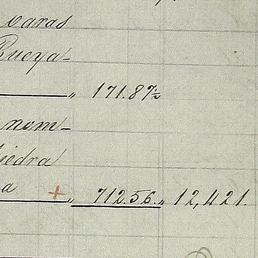 caras
Bueya-
" 171.87½
nom-
iedra
a + " 712.56. " 12,421.